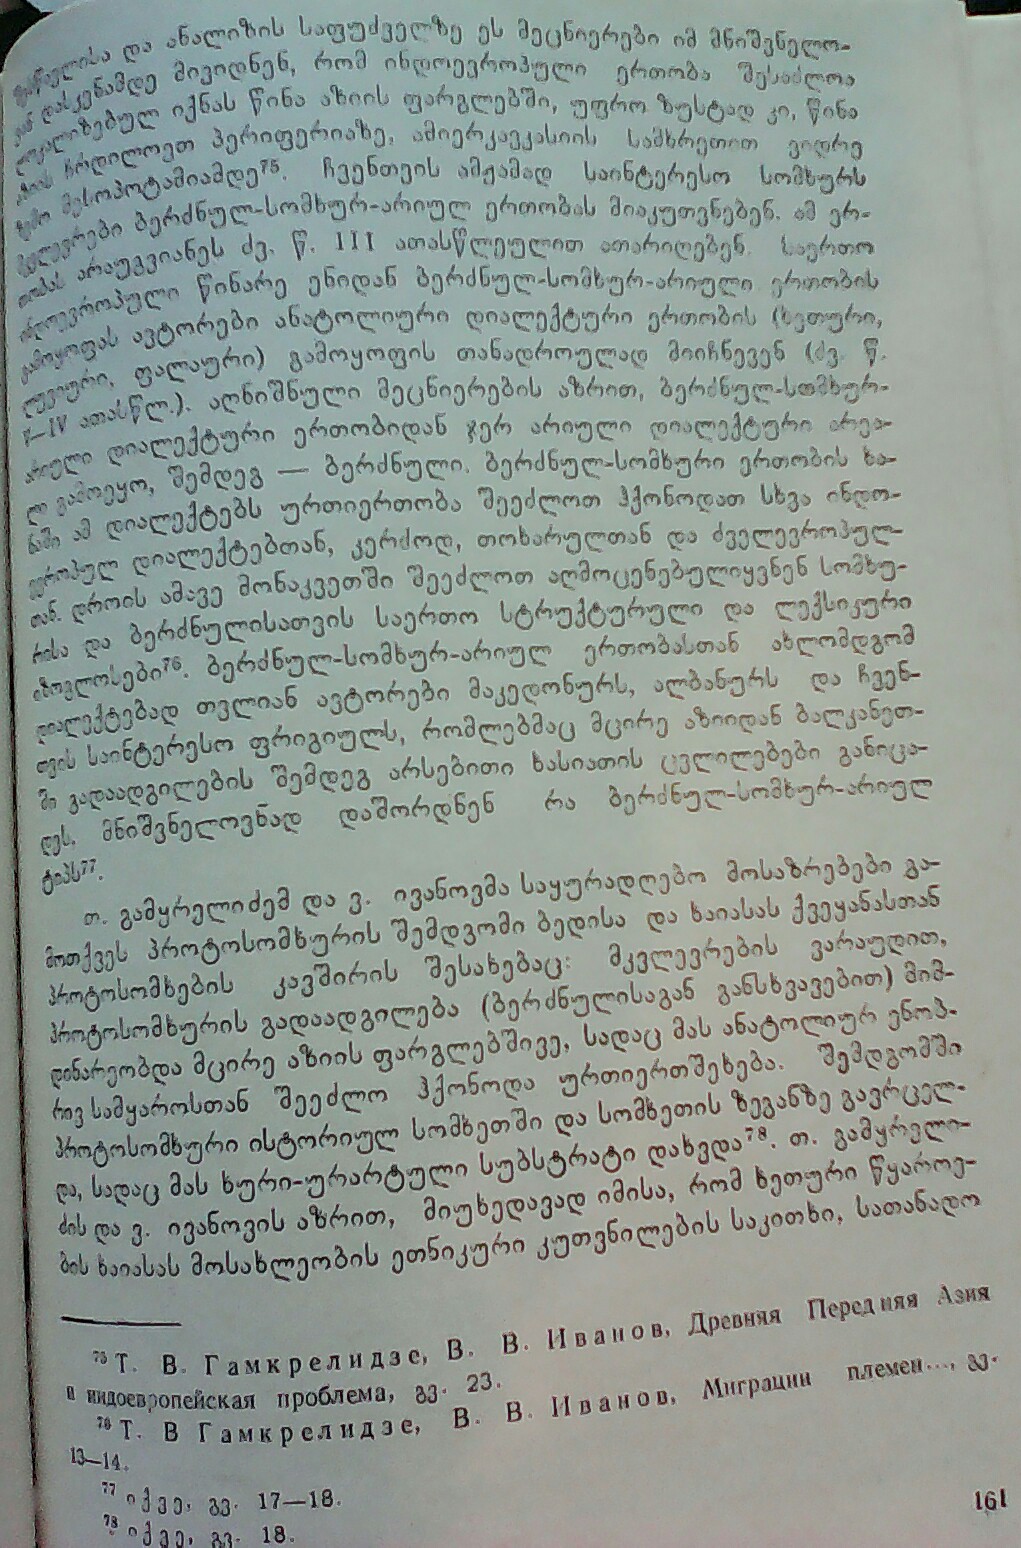 და ანალიზის საფუძველზე ეს მეცნიერები იმ მნიშვნელო-
ვან დასკვნამდე მივიდნენ, რომ ინდოევროპული ერთობა შესაძლოა
ლოკალიზებულ იქნას წინა აზიის ფარგლებში, უფრო ზუსტად კი, წინა
აზიის ჩრდილოეთ პერიფერიაზე, ამიერკავკასიის სამხრეთით ვიდრე
ზემო მესოპოტამიამდე⁷⁵. ჩვენთვის ამჟამად საინტერესო სომხურს
მკვლევრები ბერძნულ-სომხურ-არიულ ერთობას მიაკუთვნებენ. ამ ერ-
თობას არაუგვიანეს ძვ. წ. III ათასწლეულით ათარიღებენ. საერთო
ინდოევროპული წინარე ენიდან ბერძნულ-სომხურ-არიული ერთობის
გამოყოფას ავტორები ანატოლიური დიალექტური ერთობის (ხეთური,
ლუვიური, ფალაური) გამოყოფის თანადროულად მიიჩნევენ (ძვ. წ.
V—IV ათასწლ.). აღნიშნული მეცნიერების აზრით, ბერძნულ-სომხურ-
არიული დიალექტური ერთობიდან ჯერ არიული დიალექტური არეა-
ლი გამოეყო, შემდეგ — ბერძნული. ბერძნულ-სომხური ერთობის ხა-
ნაში ამ დიალექტებს ურთიერთობა შეეძლოთ ჰქონოდათ სხვა ინდო-
ევროპულ დიალექტებთან, კერძოდ, თოხარულთან და ძველევროპულ-
თან. დროის ამავე მონაკვეთში შეეძლოთ აღმოცენებულიყვნენ სომხუ-
რისა და ბერძნულისათვის საერთო სტრუქტურული და ლექსიკური
იზოგლოსები⁷⁶. ბერძნულ-სომხურ-არიულ ერთობასთან ახლომდგომ
დიალექტებად თვლიან ავტორები მაკედონურს, ალბანურს და ჩვენ-
თვის საინტერესო ფრიგიულს, რომლებმაც მცირე აზიიდან ბალკანეთ-
ში გადაადგილების შემდეგ არსებითი ხასიათის ცვლილებები განიცა-
დეს, მნიშვნელოვნად დაშორდნენ რა ბერძნულ-სომხურ-არიულ
ტიპს⁷⁷.
თ. გამყრელიძემ და ვ. ივანოვმა საყურადღებო მოსაზრებები გა-
მოთქვეს პროტოსომხურის შემდგომი ბედისა და ხაიასას ქვეყანასთან
პროტოსომხების კავშირის შესახებაც: მკვლევრების ვარაუდით,
პროტოსომხურის გადაადგილება (ბერძნულისაგან განსხვავებით) მიმ-
დინარეობდა მცირე აზიის ფარგლებშივე, სადაც მას ანატოლიურ ენობ-
რივ სამყაროსთან შეეძლო ჰქონოდა ურთიერთშეხება. შემდგომში
პროტოსომხური ისტორიულ სომხეთში და სომხეთის ზეგანზე გავრცელ-
და, სადაც მას ხური-ურარტული სუბსტრატი დახვდა⁷⁸. თ. გამყრელი-
ძის და ვ. ივანოვის აზრით, მიუხედავად იმისა, რომ ხეთური წყაროე-
ბის ხაიასას მოსახლეობის ეთნიკური კუთვნილების საკითხი, სათანადო
⁷⁵ Т. В. Гамкрелидзе, В. В. Иванов, Древняя Передняя Азия
и индоевропейская проблема, გვ. 23.
⁷⁶ Т. В Гамкрелидзе, В. В. Иванов, Миграции племен..., გვ.
13—14.
⁷⁷ იქვე, გვ. 17—18.
⁷⁸ იქვე, გვ. 18.
161